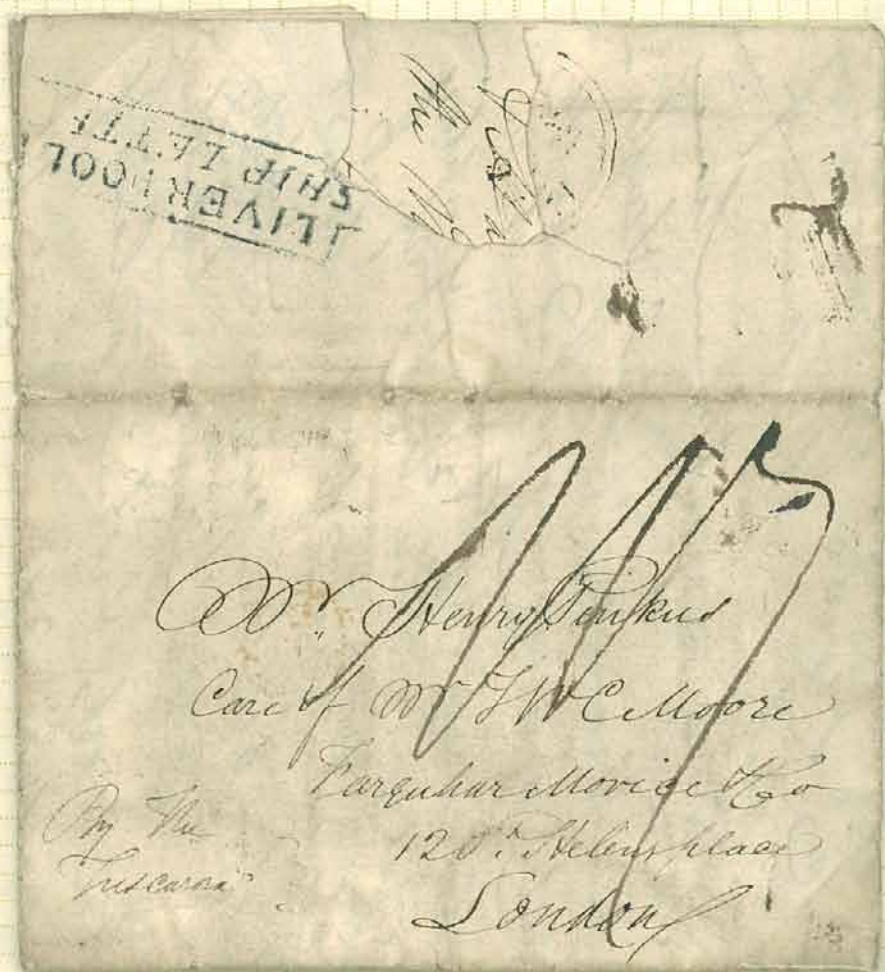 LIVERPOOL
SHIP LETTE
the
Mr. Henry Pinkus
Care of Mr T W C Moore
Farquhar Morice & Co
12 St. Helens place
London
By the
Tuscarora